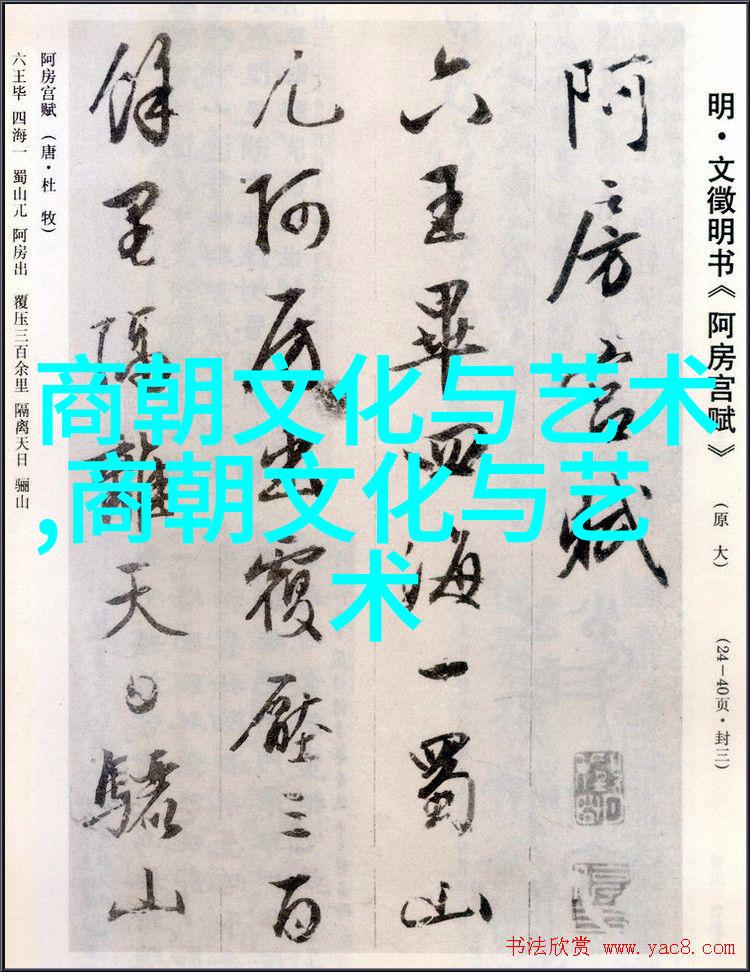 明·文徵明书《阿房宫赋》 (原大) (24—40页·封三)
阿房宫賦
六王畢四海一蜀山
兀阿房出覆壓三百
餘里隔離天日驪山
阿房宫赋 (唐·杜 牧)
六王毕 四海一 蜀山兀 阿房出 覆压三百余里 隔离天日 骊山
商朝文化与艺术
,商朝文化与艺
术
书法欣赏 www.yac8.com